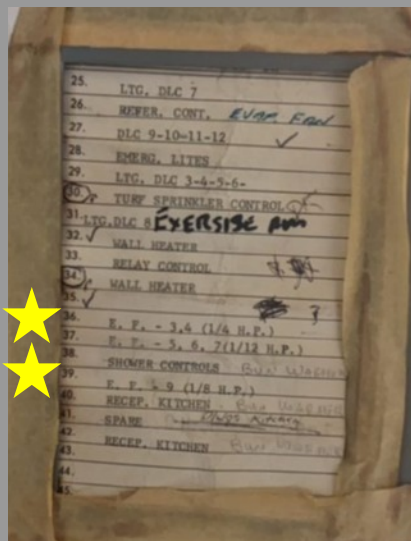 25. LTG. DLC 7
26. REFER. CONT. EVAP. FAN
27. DLC 9-10-11-12 ✓
28. EMERG. LITES
29. LTG. DLC 3-4-5-6-
30. TURF SPRINKLER CONTROL
31. LTG.DLC 8 EXERSISE RM
32. ✓ WALL HEATER
33. RELAY CONTROL
34. WALL HEATER
35. ✓
36. E. F. - 3,4 (1/4 H.P.)
37. E. F. - 5, 6, 7(1/12 H.P.)
38. SHOWER CONTROLS BUN WARMER
39. E. F. - 9 (1/8 H.P.)
40. RECEP. KITCHEN BUN WARMER
41. SPARE
42. RECEP. KITCHEN BUN WARMER
43.
44.
45.